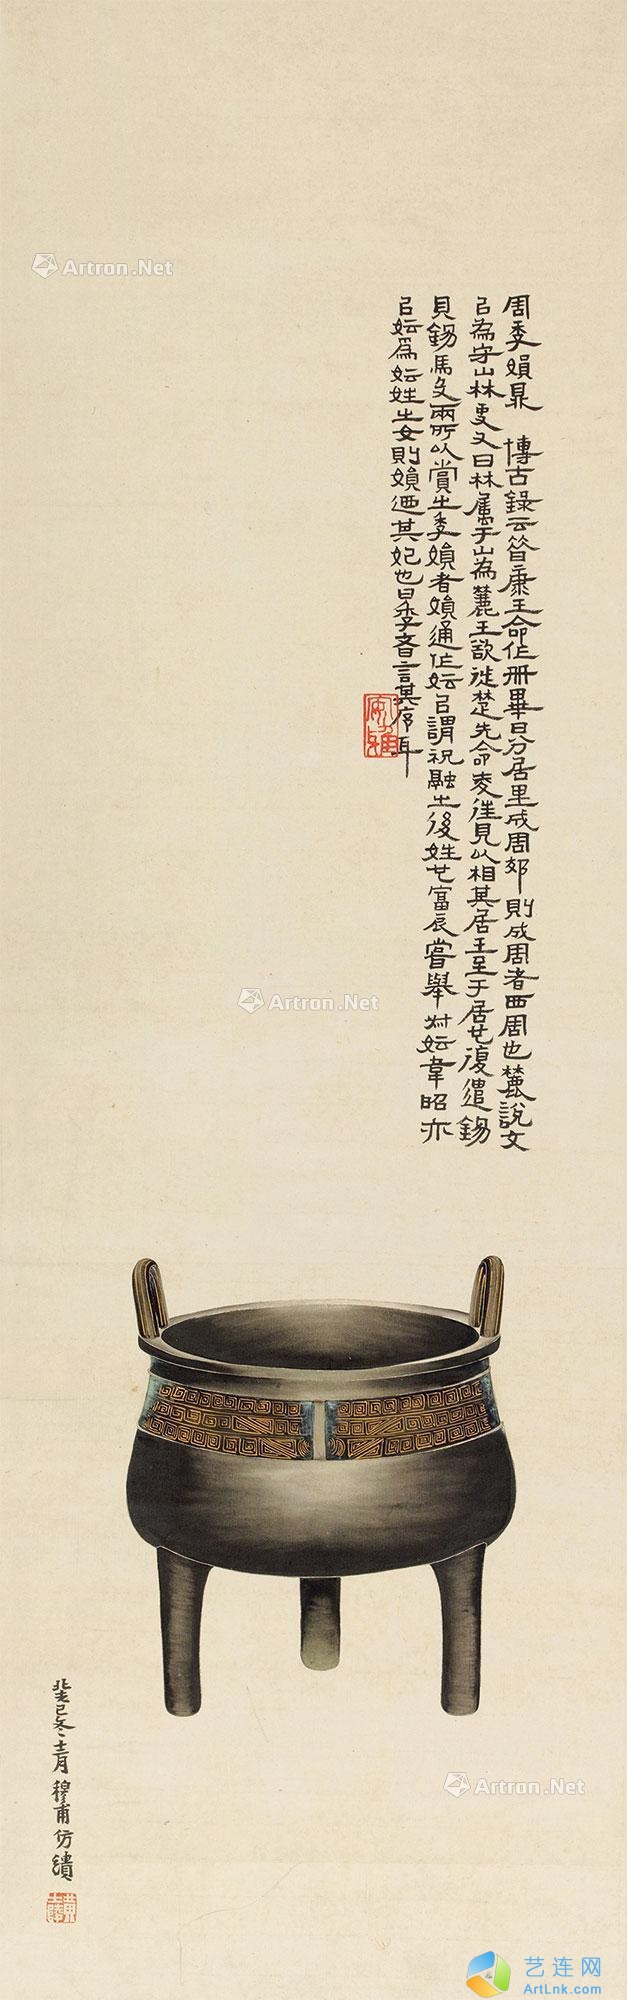 周季娟鼎 博古錄云昔康王命作冊畢曰分居里成周郊則成周者西周也麓說文
㠯為守山林吏又曰林屬于山為麓王欲徙楚先命夌往見以相其居王至于居也復遣錫
貝錫馬夂兩所以賞㞢季媜者媜通作妘㠯謂祝融㞢後姓也富辰嘗舉叔妘韋昭亦
㠯妘為妘姓㞢女則媜迺其妃也曰季者言其序耳
癸巳冬十二月穆甫仿繢
Artron.Net
Artron.Net
Artron.Net
艺连网
ArtLnk.com